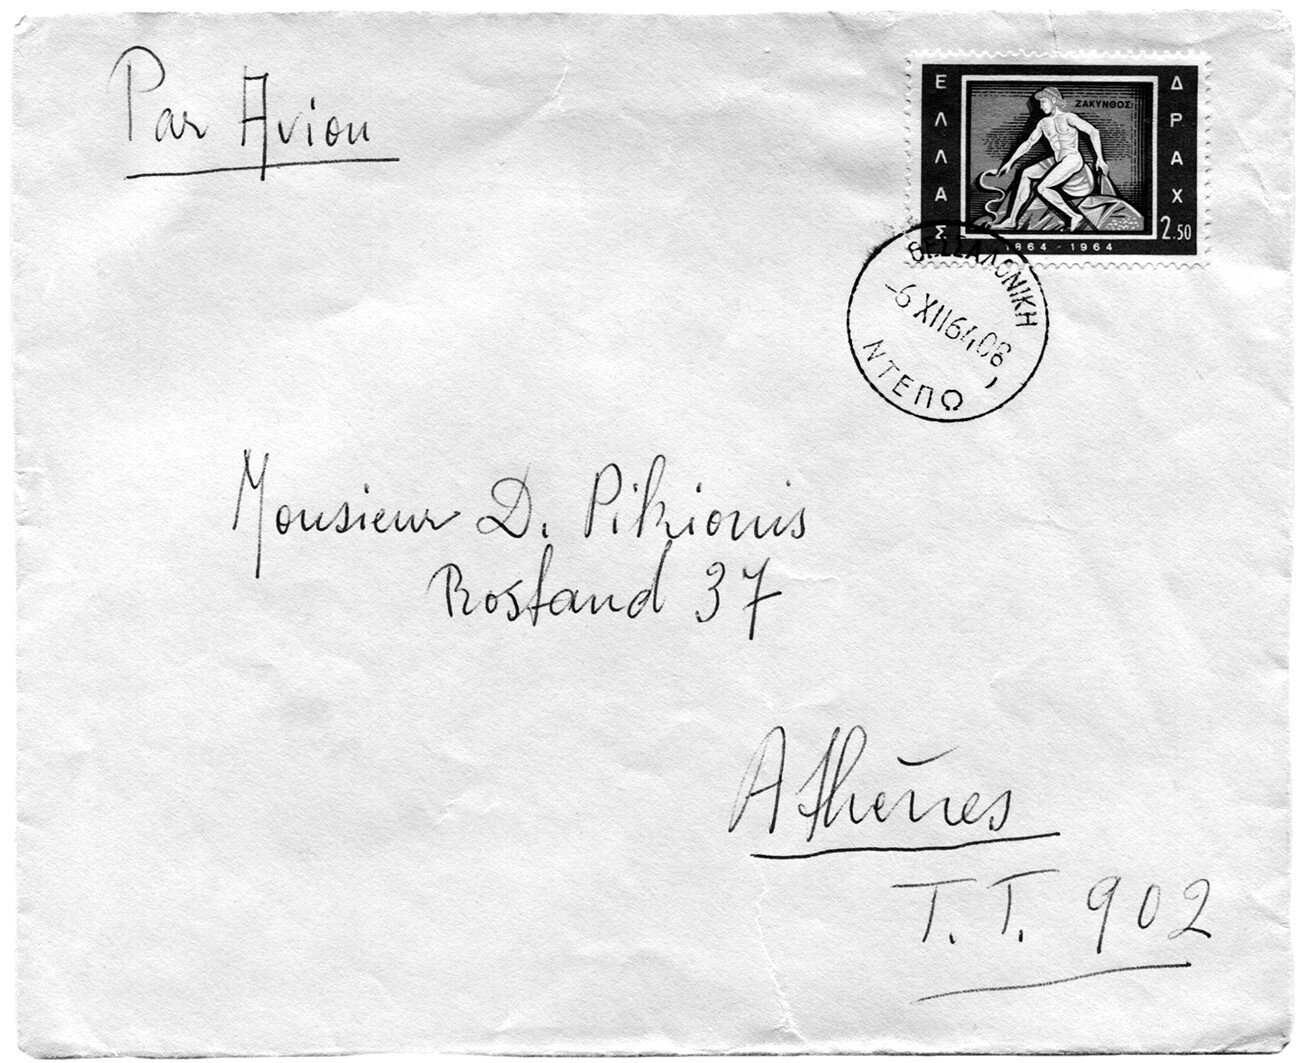 Par Avion
ΕΛΛΑΣ
ΖΑΚΥΝΘΟΣ
ΔΡΑΧ
2.50
1864 - 1964
ΘΕΣΣΑΛΟΝΙΚΗ
-6 XII 64.08
ΝΤΕΠΩ
Monsieur D. Pikionis
Rostand 37
Athènes
T.T. 902